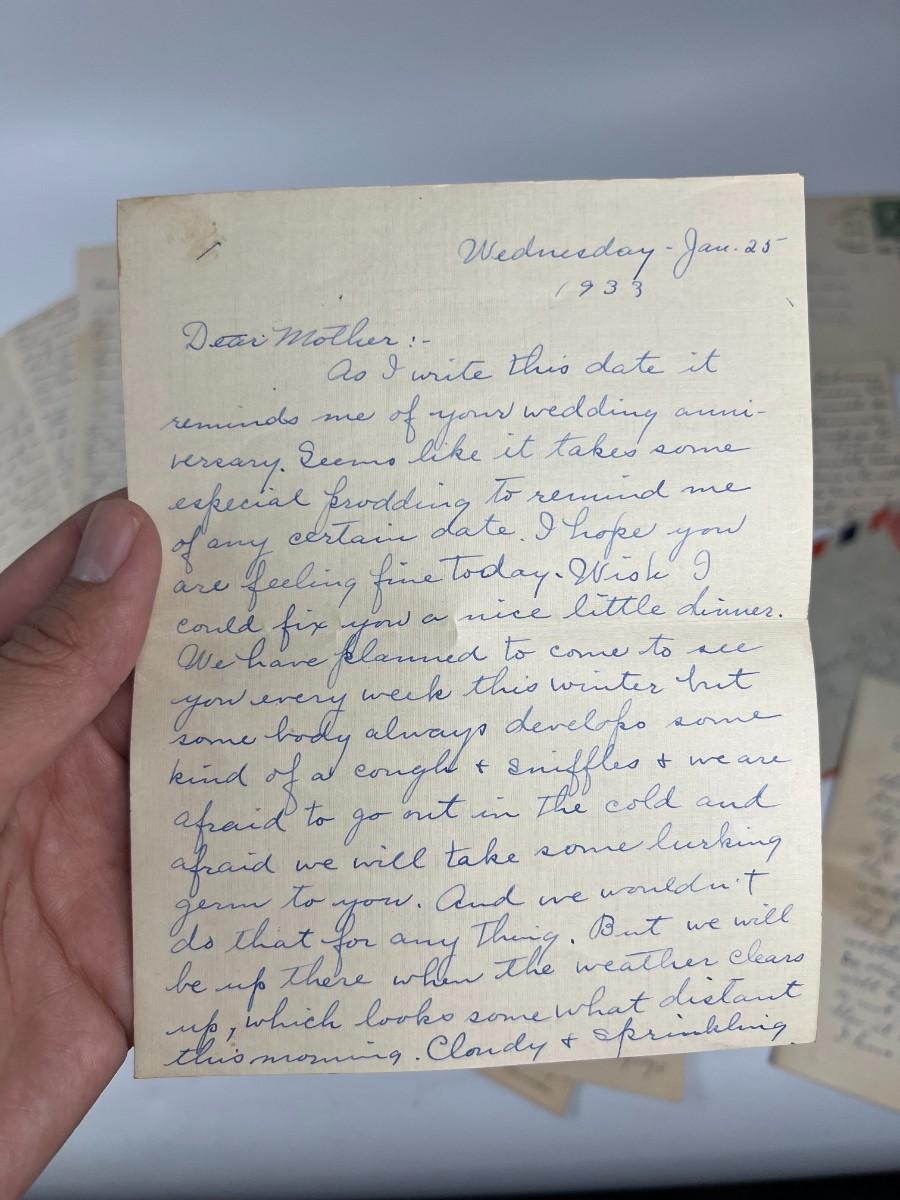 Wednesday - Jan. 25
1933
Dear Mother :-
As I write this date it
reminds me of your wedding anni-
versary. Seems like it takes some
especial prodding to remind me
of any certain date. I hope you
are feeling fine today. Wish I
could fix you a nice little dinner.
We have planned to come to see
you every week this winter but
some body always develops some
kind of a cough & sniffles & we are
afraid to go out in the cold and
afraid we will take some lurking
germ to you. And we wouldn't
do that for any thing. But we will
be up there when the weather clears
up, which looks somewhat distant
this morning. Cloudy & sprinkling.